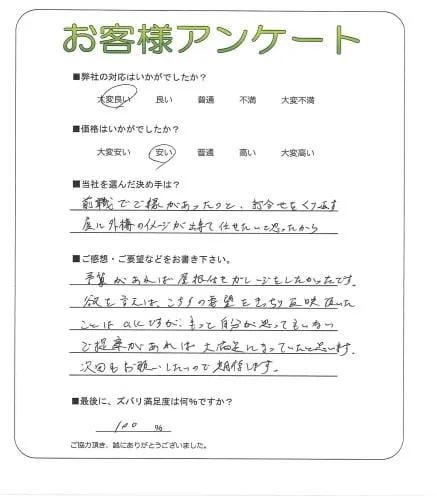 お客様アンケート
■弊社の対応はいかがでしたか?
大変良い 良い 普通 不満 大変不満
■価格はいかがでしたか?
大変安い 安い 普通 高い 大変高い
■当社を選んだ決め手は?
前職でご縁があったのと、打合せをくり返す
度に外構のイメージが出来て任せたいと思ったから
■ご感想・ご要望などをお書き下さい。
予算があれば屋根付きガレージもしたかったです。
欲を言えば、こちらの要望をきっちり反映頂いた
ことは ですが、もっと自分が思ってもいない
ご提案があれば大満足になっていたと思います。
次回もお願いしたいので期待します。
■最後に、ズバリ満足度は何%ですか?
100 %
ご協力頂き、誠にありがとうございました。